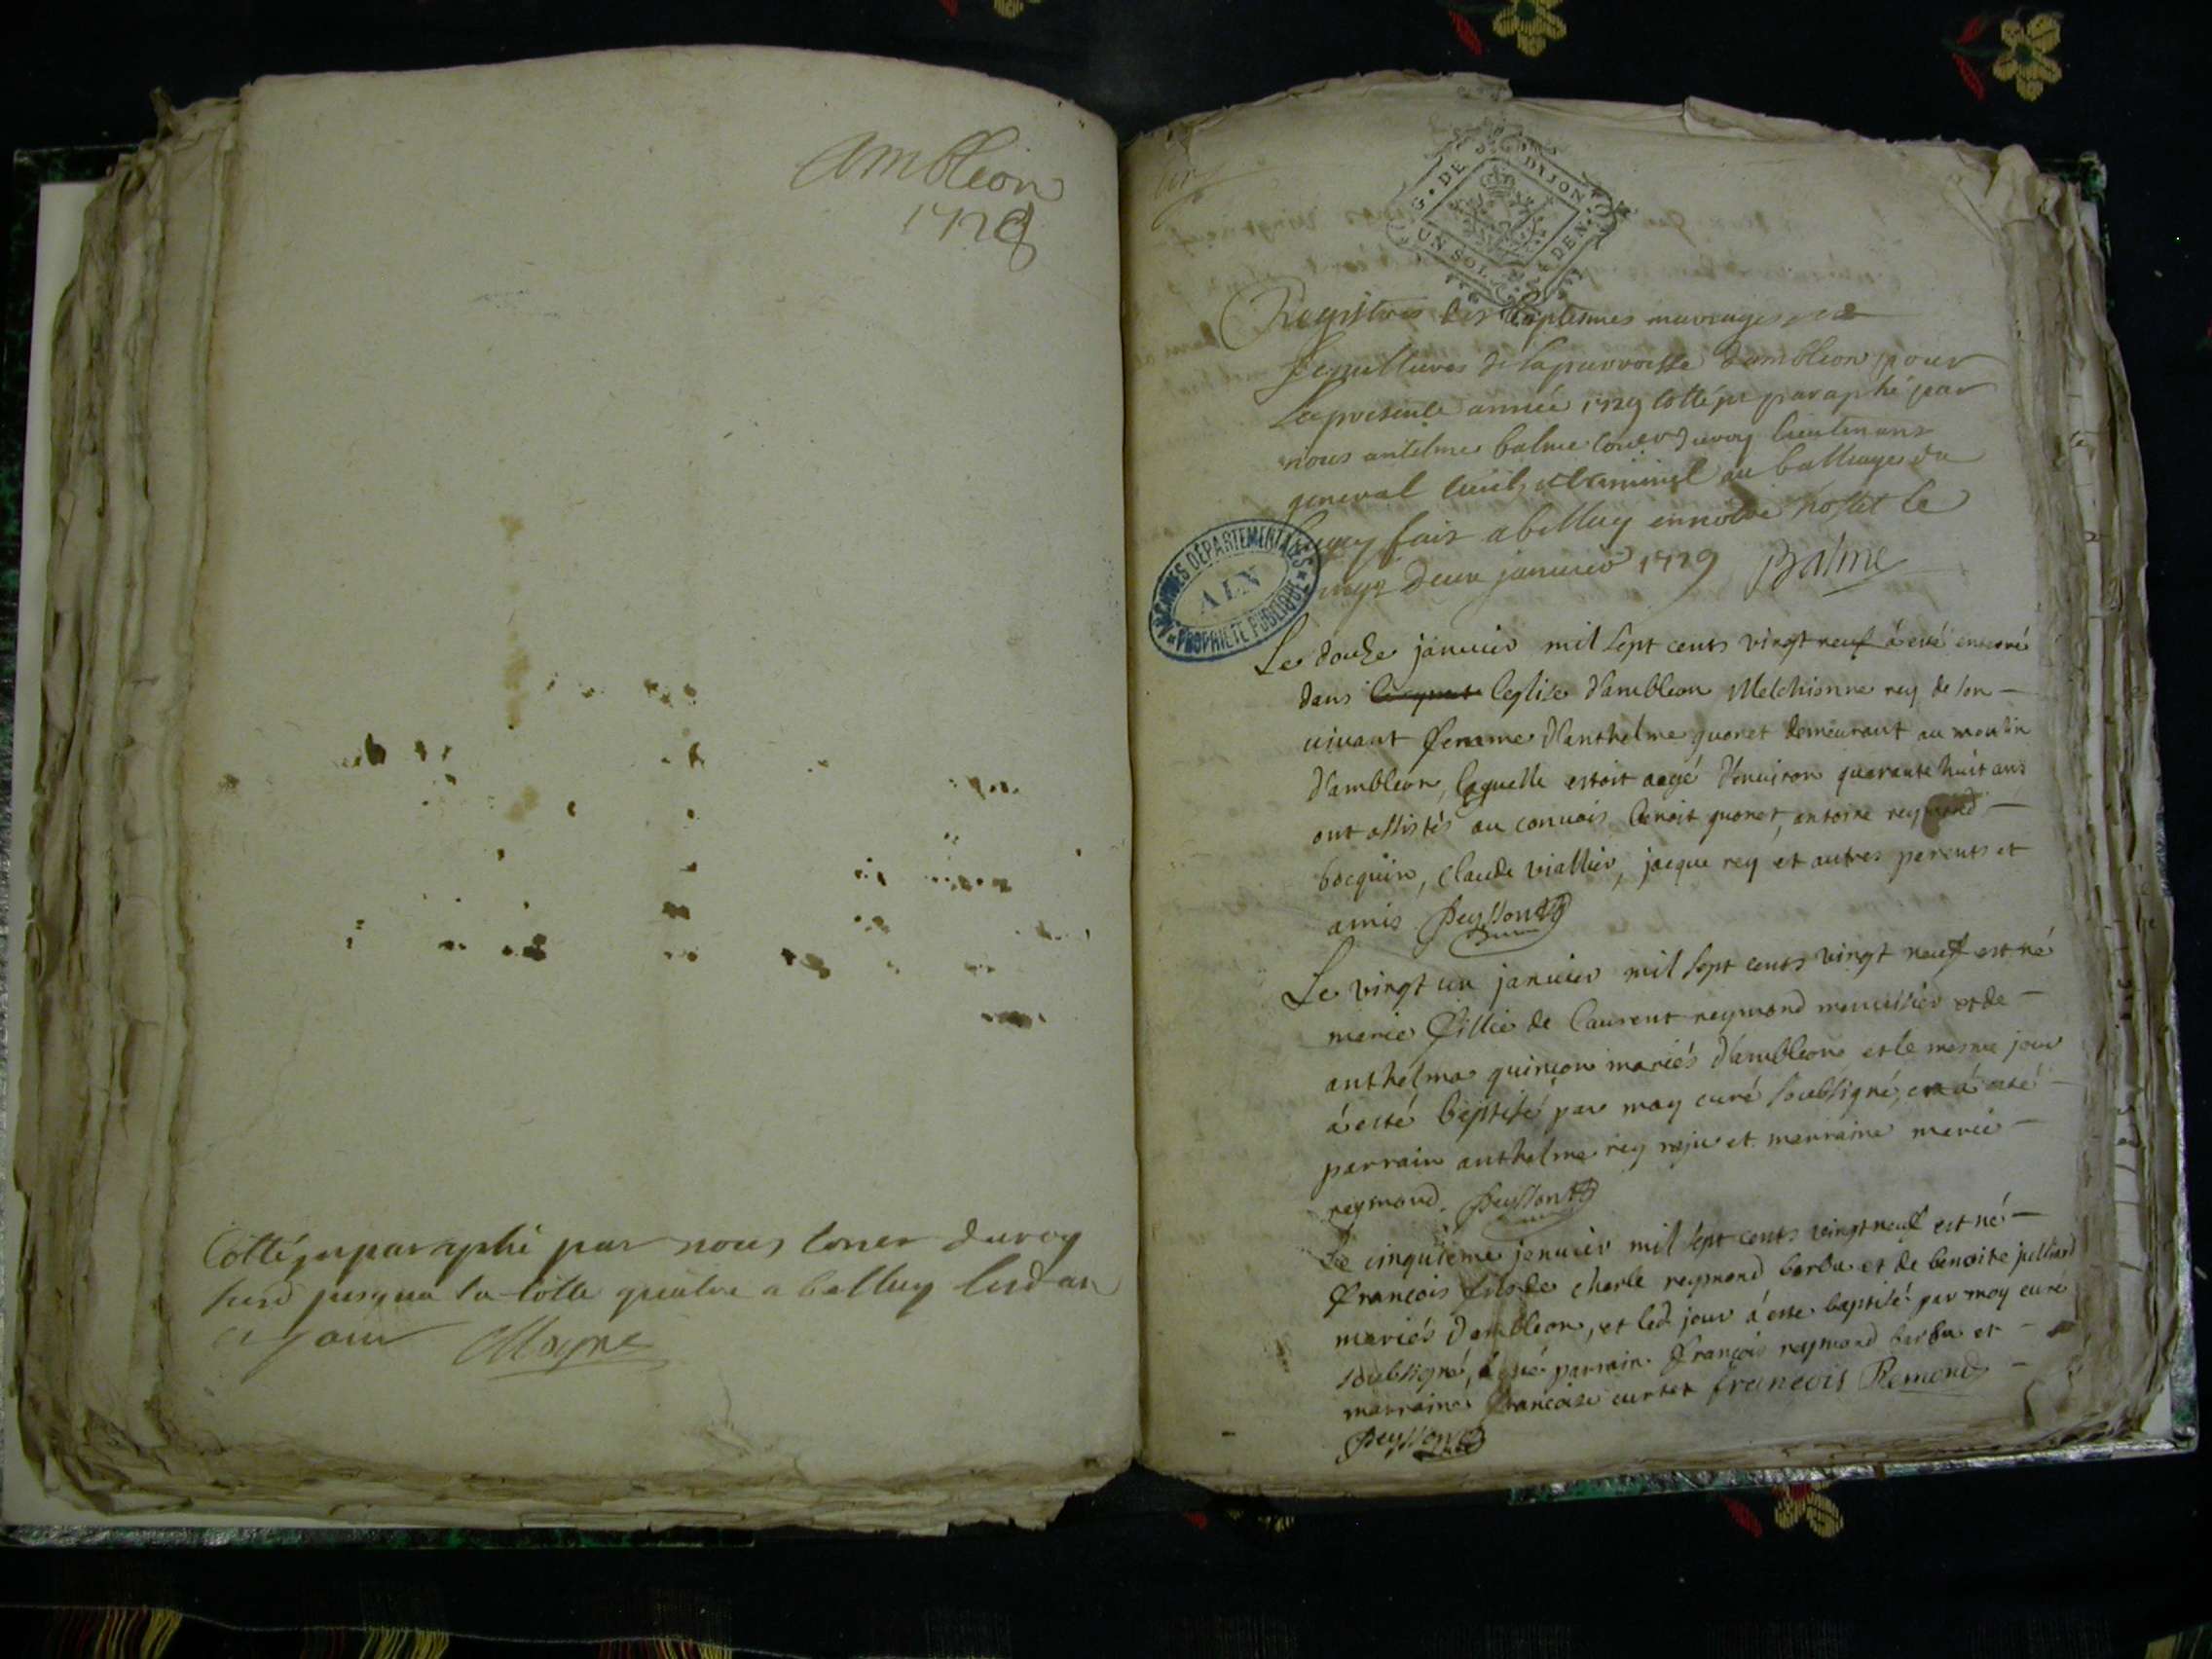 Ambleon
1728
Cotté et paraphé par nous coner du roy
jusqua la cotte quatre a belley lesd an
et jour Mayne
G. DE DIJON
UN SOL 4 DEN.
Registres des baptemes mariages et
sepultures de la parroisse dambleon pour
la presente année 1729 cotté et paraphé par
nous antelme balme coner du roy lieutenant
general civil et criminel au balliage du
bugey fait a belley en notre hostel le
deux janvier 1729 Balme
ARCHIVES DÉPARTEMENTALES
AIN
PROPRIÉTÉ PUBLIQUE
Le douze janvier mil sept cents vingt neuf à esté enterré
dans l'eglise d'ambleon Melchionne rey de son
vivant femme d'anthelme quonet demeurant au moulin
d'ambleon, laquelle estoit aagé d'environ quarante huit ans
ont assistés au convois benoit quonet, antoine reymond
bocquin, claude viallier, jacque rey et autres parents et
amis Peysson
Le vingt un janvier mil sept cents vingt neuf est né
marie fillie de laurent reymond menuisier et de
anthelma quinson mariés d'ambleon et le mesme jour
à esté baptisé par moy curé soubsigné, en à esté
parrain anthelme rey et marraine marie
reymond. Peysson
Le cinquieme janvier mil sept cents vingt neuf est né
françois fils de charle reymond barbu et de benoite julliard
mariés d'ambleon, et led jour à esté baptisé par moy curé
soubsigné, à esté parrain françois reymond barbu et
marraine françoise curtet françois Remond
Peysson